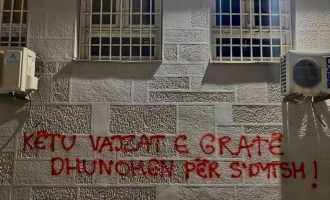 KËTU VAJZAT E GRATË
DHUNOHEN PËR S'DYTSH!